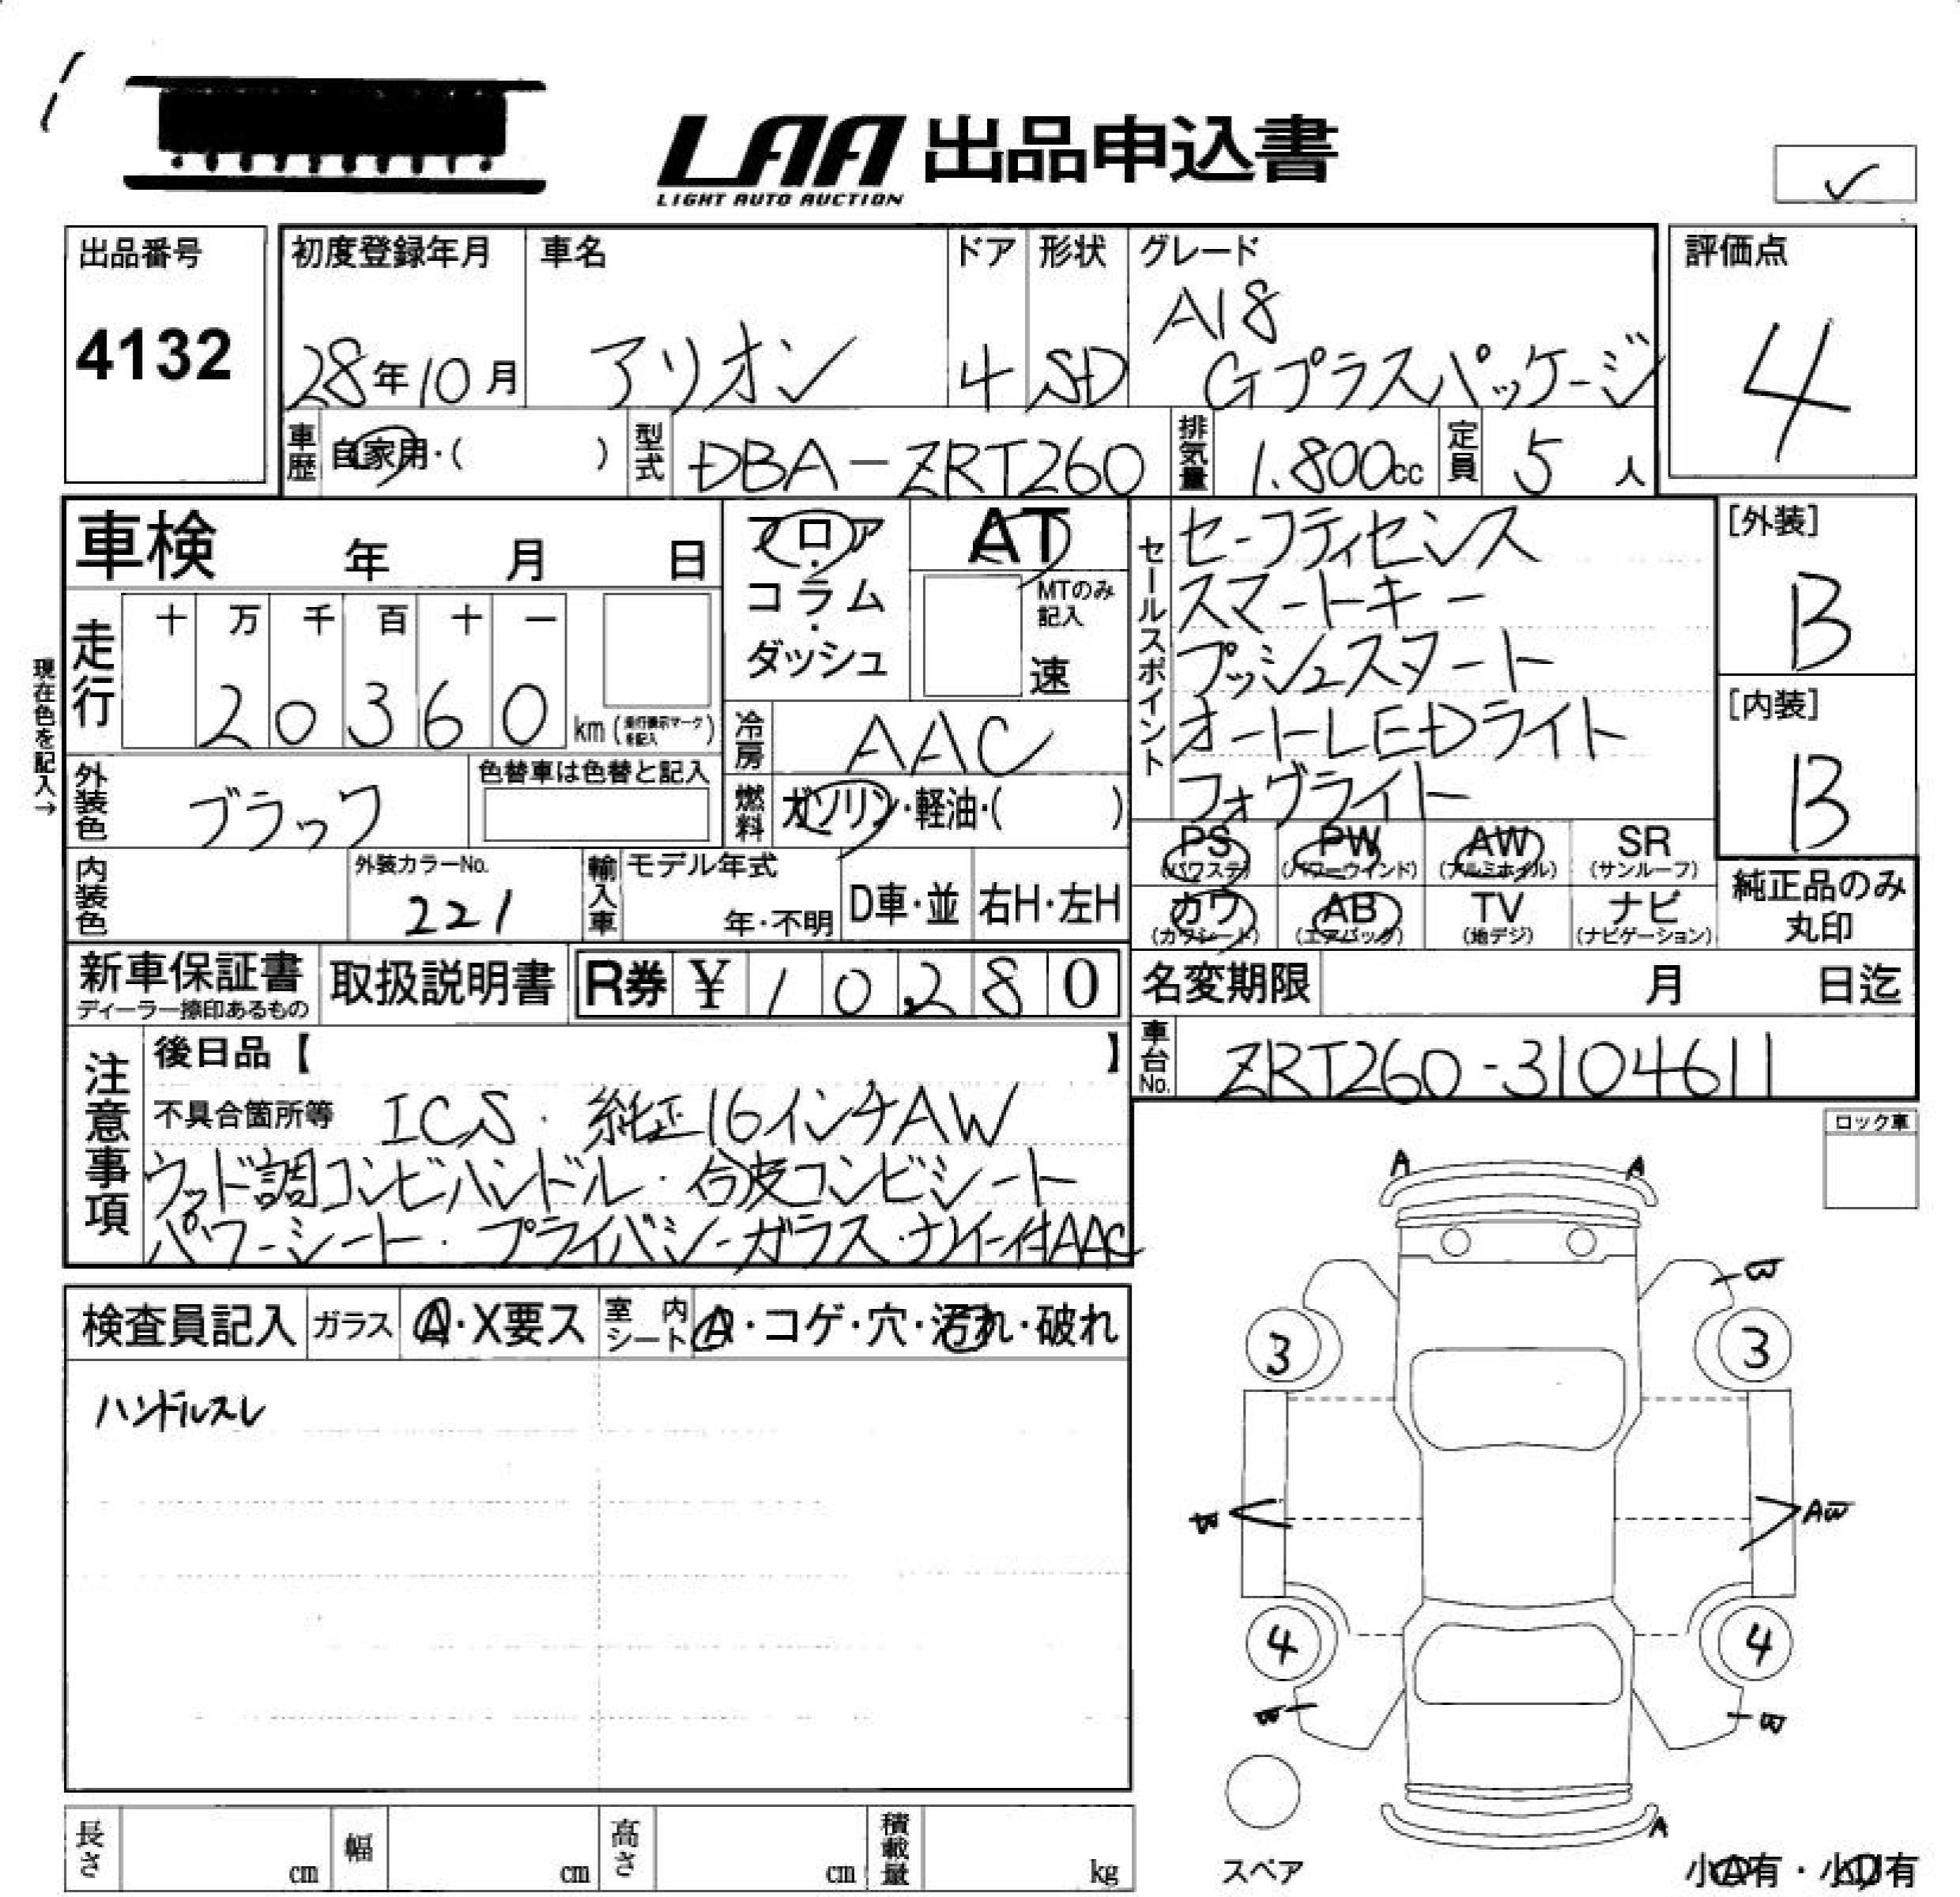 LAA 出品申込書
LIGHT AUTO AUCTION
出品番号
4132
初度登録年月
28年10月
車名
アリオン
ドア
4
形状
SD
グレード
A18
Gプラスパッケージ
評価点
4
車歴
自家用・( )
型式
DBA-ZRT260
排気量
1.800cc
定員
5人
車検 年 月 日
フロア・コラム・ダッシュ
AT
MTのみ記入
速
セールスポイント
セーフティセンス
スマートキー
プッシュスタート
オートLEDライト
フォグライト
[外装]
B
[内装]
B
現在色を記入→
走行
十 万 千 百 十 一
2 0 3 6 0 km (走行表示マークを記入)
冷房
AAC
外装色
ブラック
色替車は色替と記入
燃料
ガソリン・軽油・( )
PS (パワステ)
PW (パワーウインド)
AW (アルミホイル)
SR (サンルーフ)
カワ (カワシート)
AB (エアバッグ)
TV (地デジ)
ナビ (ナビゲーション)
純正品のみ
丸印
内装色
外装カラーNo.
221
輸入車
モデル年式
年・不明
D車・並
右H・左H
新車保証書
ディーラー捺印あるもの
取扱説明書
R券 ¥ 1 0.2 8 0
名変期限 月 日迄
車台No.
ZRT260-3104611
注意事項
後日品【 】
不具合箇所等 ICS・純正16インチAW
ウッド調コンビハンドル・合皮コンビシート
パワーシート・プライバシーガラス・ナノイー付AAC
ロック車
検査員記入
ガラス A・X要ス
室内シート A・コゲ・穴・汚れ・破れ
ハンドルスレ
A A
W
3 3
W AW
4 4
W W
A
スペア
小A有・小U有
長さ cm
幅 cm
高さ cm
積載量 kg